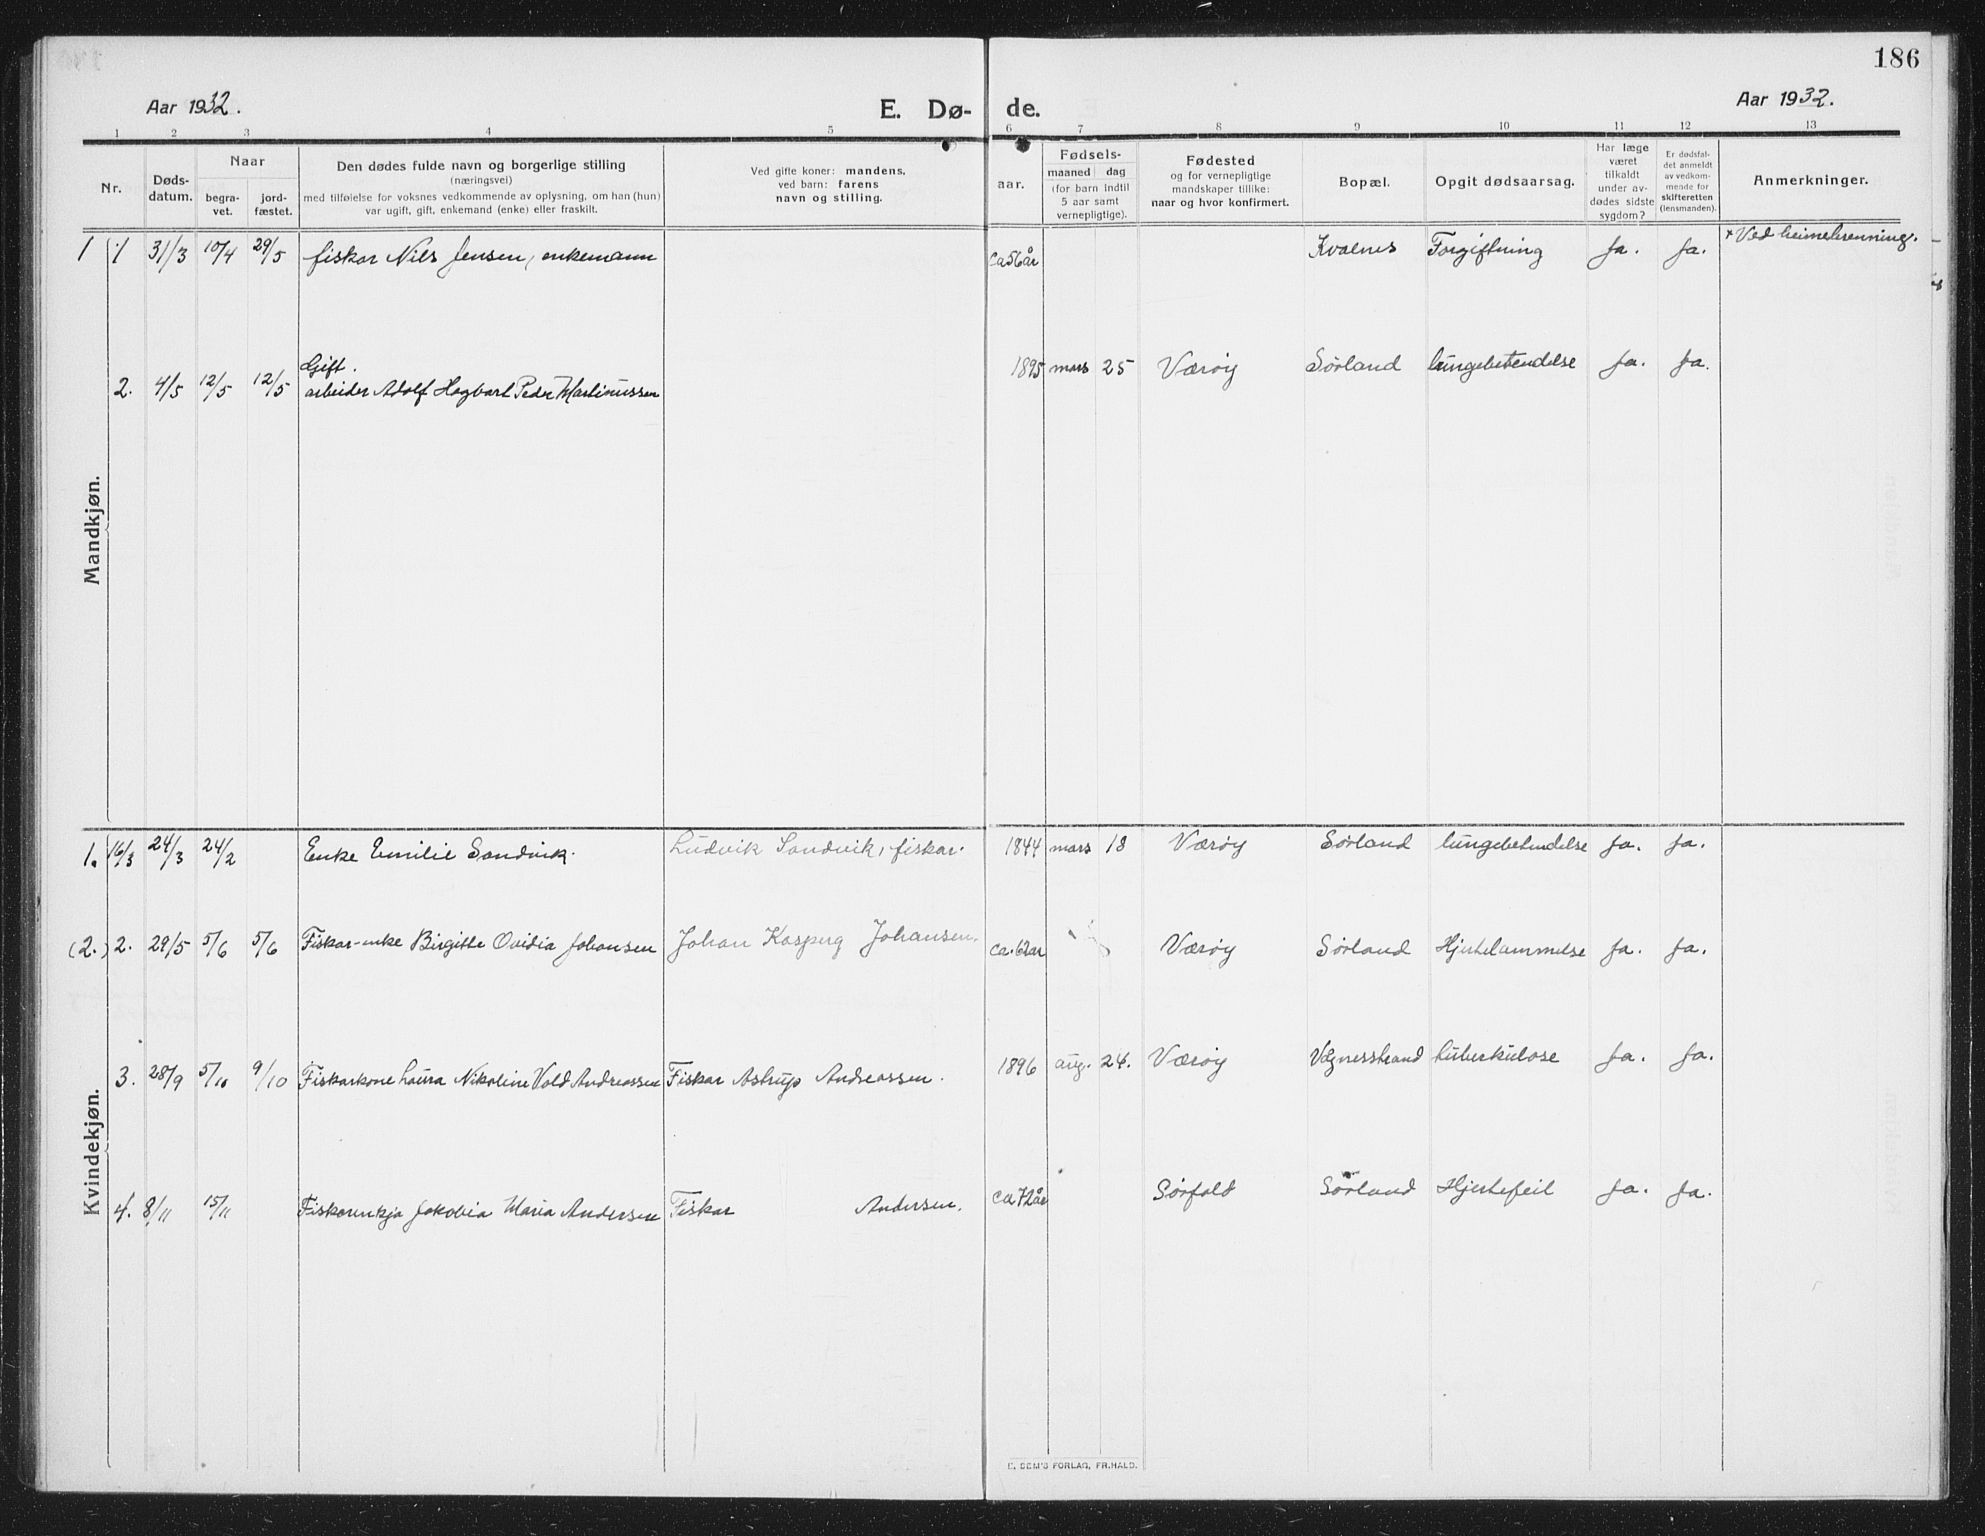 186
Aar 1932.
E. Dø-
de.
Aar 1932.
1 2 3 4 5 6 7 8 9 10 11 12 13
Nr.
Døds-
datum.
Naar
begra-
vet.
jord-
fæstet.
Den dødes fulde navn og borgerlige stilling
(næringsvei)
med tilføielse for voksnes vedkommende av oplysning, om han (hun)
var ugift, gift, enkemand (enke) eller fraskilt.
Ved gifte koner: mandens,
ved barn: farens
navn og stilling.
aar.
Fødsels-
maaned dag
(for barn indtil
5 aar samt
vernepligtige).
Fødested
og for vernepligtige
mandskaper tillike:
naar og hvor konfirmert.
Bopæl.
Opgit dødsaarsag.
Har læge
været
tilkaldt
under av-
dødes sidste
sygdom?
Er dødsfal-
det anmeldt
av vedkom-
mende for
skifteretten
(lensmanden).
Anmerkninger.
Mandkjøn.
1 1 31/3 10/4 29/5 fiskar Nils Jensen, enkemann ca 56 år Kvalnes Forgiftning Ja. Ja. + Ved heimebrenning.
Gift.
2. 4/5 12/5 12/5 arbeider Adolf Hagbart Peder Martinussen 1895 mars 25 Værøy Sørland lungebetendelse Ja. Ja.
Kvindekjøn.
1. 16/3 24/3 24/2 Enke Emilie Sandvik. Ludvik Sandvik, fiskar. 1844 mars 18 Værøy Sørland lungebetendelse Ja. Ja.
(2.) 2. 29/5 5/6 5/6 Fiskar-enke Birgitte Ovidia Johansen Johan Johansen. ca. 62 år Værøy Sørland Hjertelammelse Ja. Ja.
3. 28/9 5/10 9/10 Fiskarkone Laura Nikoline Vold Andreassen Fiskar Astrup Andreassen. 1896 aug. 24. Værøy tuberkulose Ja. Ja.
4. 8/11 15/11 Fiskarenkja Jakobia Maria Andersen Fiskar Andersen. ca 72 år Sørfold Sørland Hjertefeil Ja. Ja.
E. SEM'S FORLAG, FR.HALD.